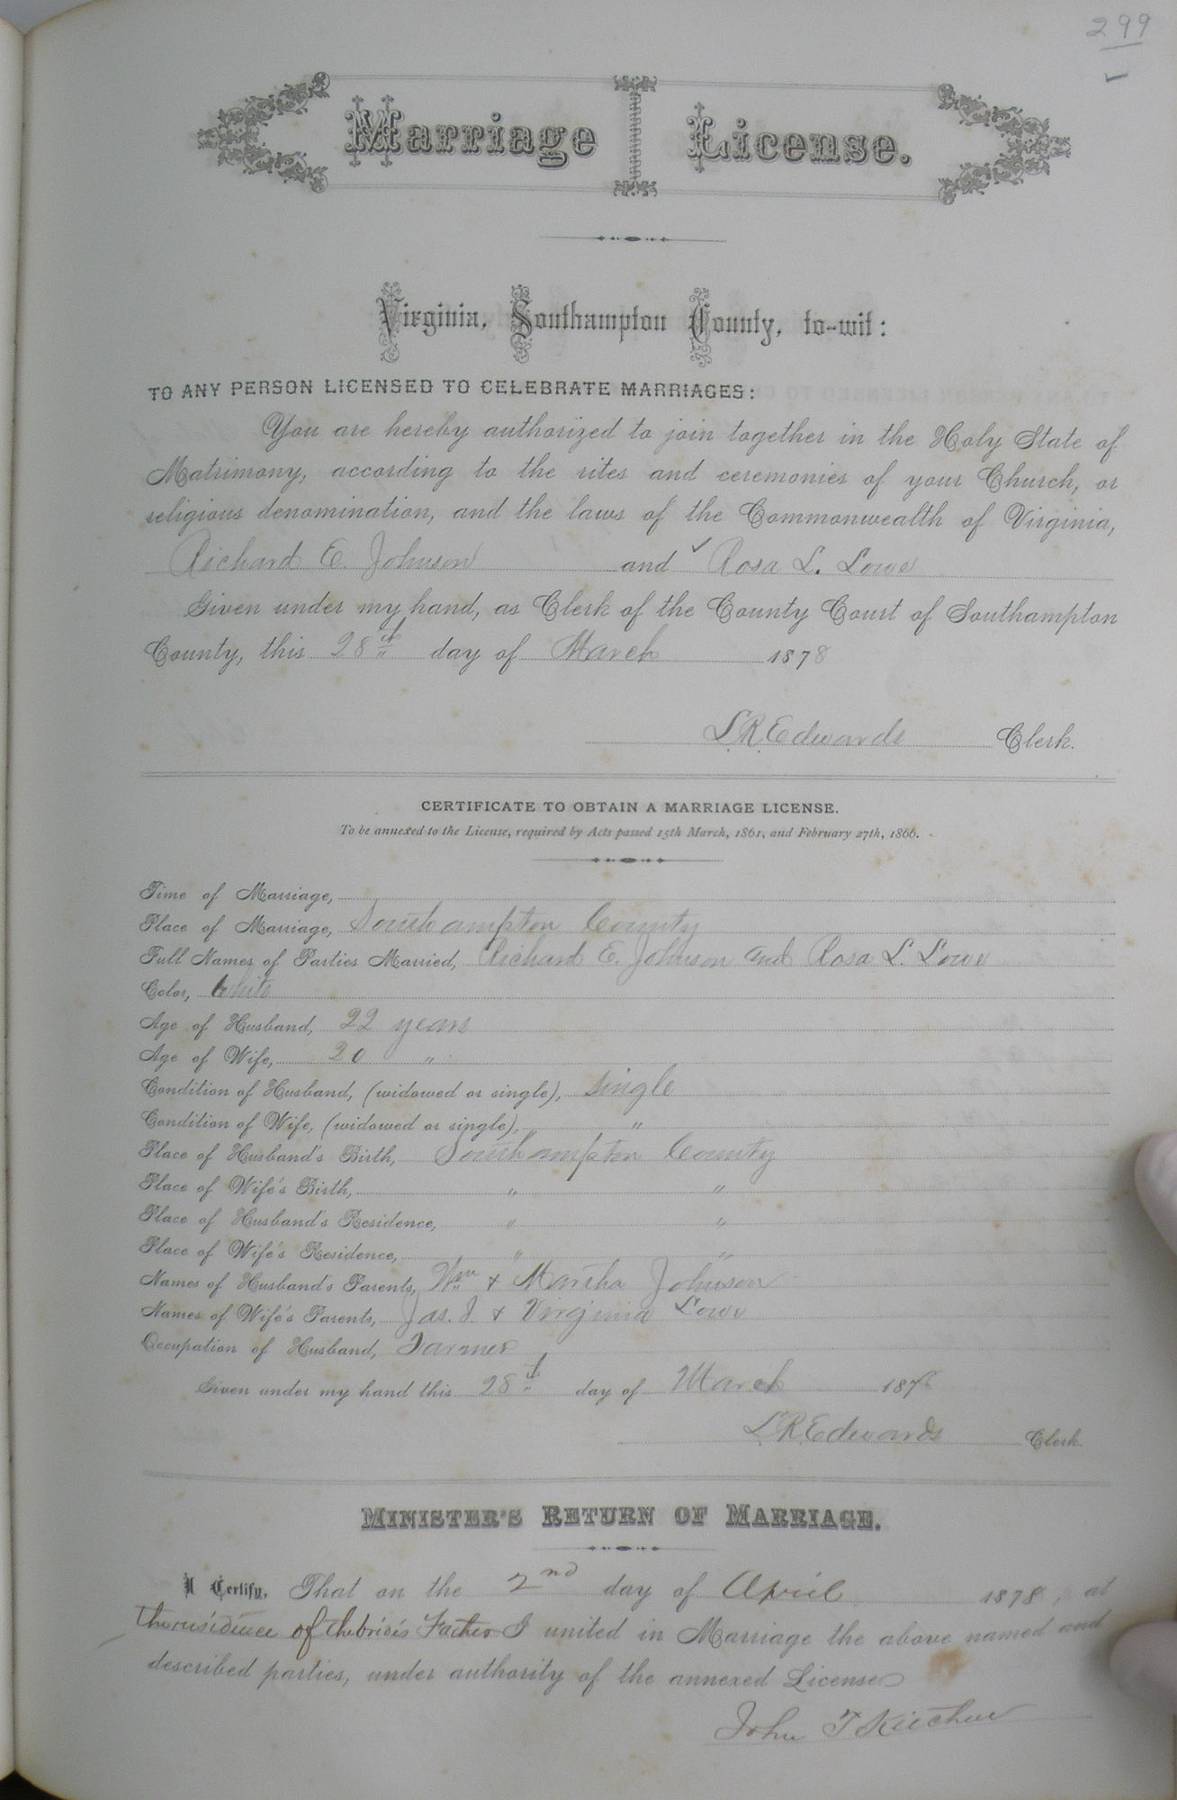 299
Marriage License.
Virginia, Southampton County, to-wit:
TO ANY PERSON LICENSED TO CELEBRATE MARRIAGES:
You are hereby authorized to join together in the Holy State of
Matrimony, according to the rites and ceremonies of your Church, or
religious denomination, and the laws of the Commonwealth of Virginia,
Richard E. Johnson and ✓ Rosa L. Lowe
Given under my hand, as Clerk of the County Court of Southampton
County, this 28th day of March 1878
L. R. Edwards Clerk.
CERTIFICATE TO OBTAIN A MARRIAGE LICENSE.
To be annexed to the License, required by Acts passed 15th March, 1861, and February 27th, 1866.
Time of Marriage,
Place of Marriage, Southampton County
Full Names of Parties Married, Richard E. Johnson and Rosa L. Lowe
Color, White
Age of Husband, 22 years
Age of Wife, 20 "
Condition of Husband, (widowed or single), Single
Condition of Wife, (widowed or single), "
Place of Husband's Birth, Southampton County
Place of Wife's Birth, " "
Place of Husband's Residence, " "
Place of Wife's Residence, " "
Names of Husband's Parents, Wm & Martha Johnson
Names of Wife's Parents, Jas. J. & Virginia Lowe
Occupation of Husband, Farmer
Given under my hand this 28th day of March 1878
L. R. Edwards Clerk.
MINISTER'S RETURN OF MARRIAGE.
I Certify, That on the 2nd day of April 1878, at
the residence of the bride's Father I united in Marriage the above named and
described parties, under authority of the annexed License
John T Kitchen